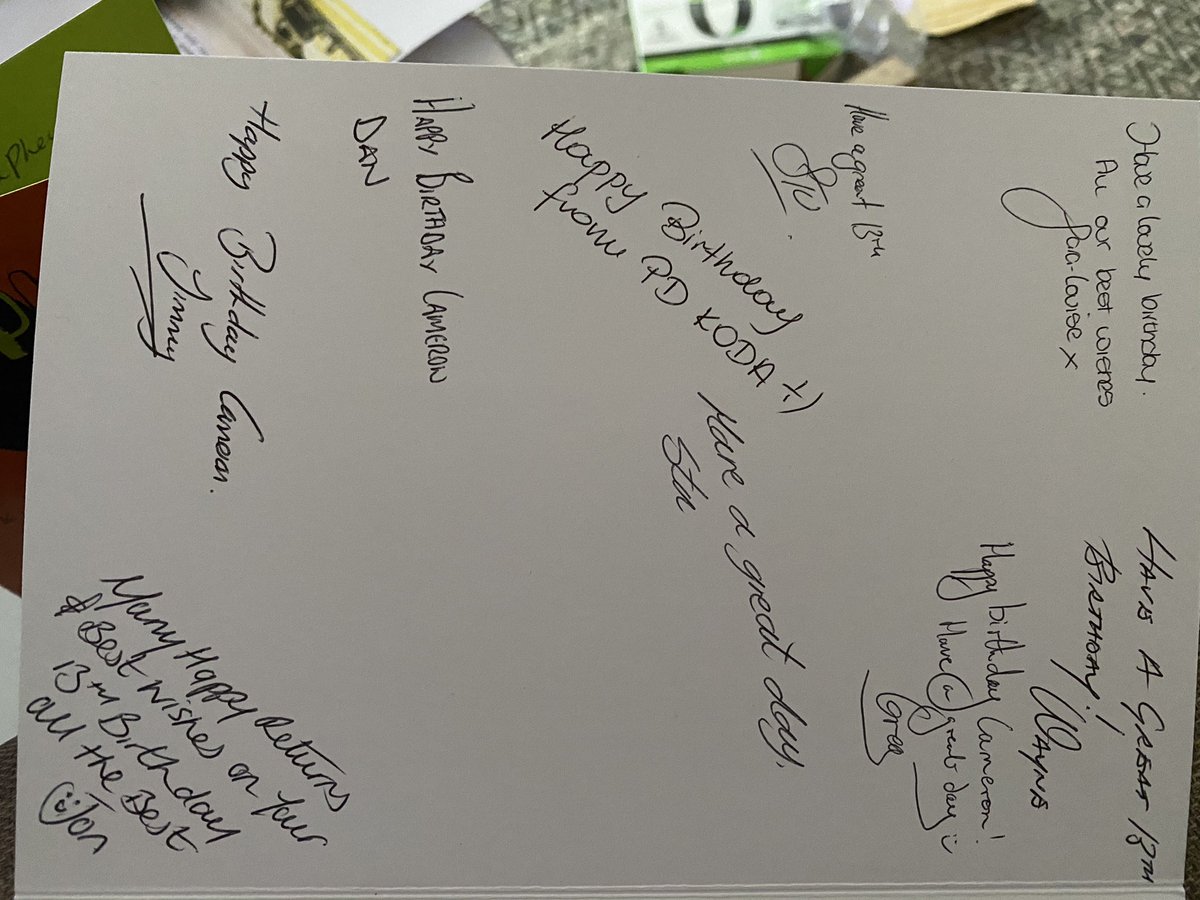 Have a lovely birthday.
All our best wishes
Sara-Louise x
HAVE A GREAT 13TH
BIRTHDAY!
WAYNE
Happy birthday Cameron!
Have a great day :)
Greg
Have a great 13th
Happy Birthday
from PD KODA :)
Have a great day,
Stu
HAPPY BIRTHDAY CAMERON
DAN
Happy Birthday Cameron.
Jimmy
Many Happy Returns
& Best wishes on your
13TH Birthday
all the Best
Jon